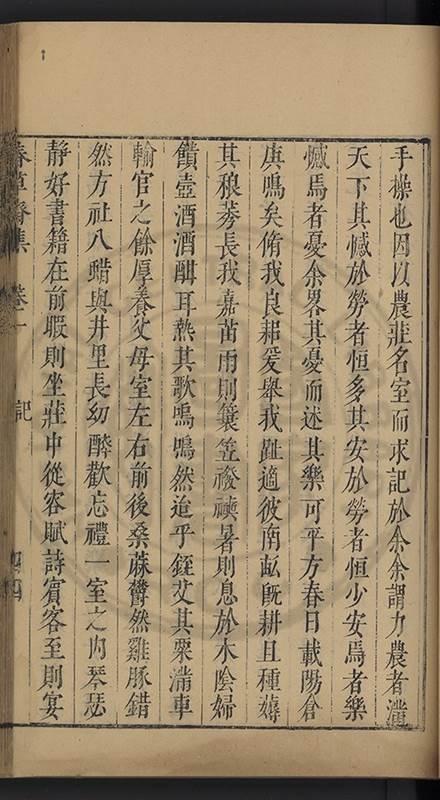 手操也因以農莊名室而求記於余余謂力農者滿
天下其憾於勞者恒多其安於勞者恒少安焉者樂
憾焉者憂余畧其憂而述其樂可乎方春日載陽倉
庚鳴矣脩我良耜爰舉我趾適彼南畝旣耕且種薅
其稂莠長我嘉苗雨則簑笠襏襫暑則息於木陰婦
饋壺酒酒酣耳熱其歌嗚嗚然迨乎銍艾其粟滿車
輸官之餘厚養父母室左右前後桑蔴鬱然雞豚錯
然方社八蜡與井里長幼醉歡忘禮一室之內琴瑟
靜好書籍在前暇則坐莊中從容賦詩賓客至則宴
春草齋集 卷一 記